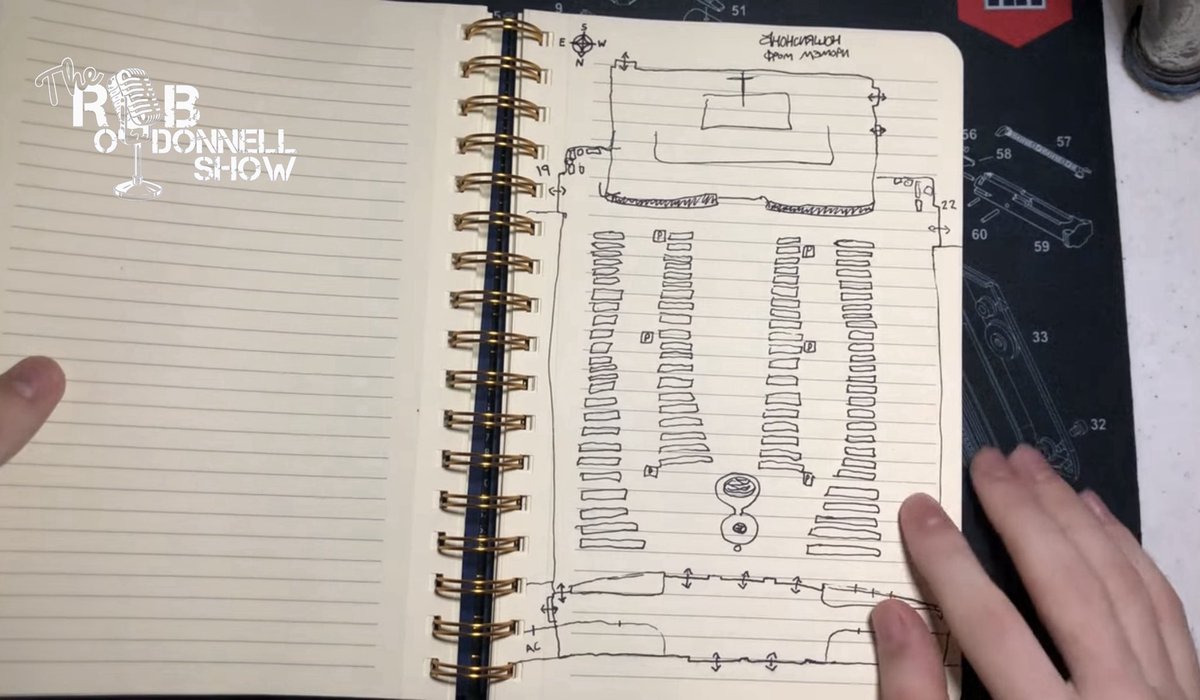 The
ROB
O'DONNELL
SHOW
9
51
S
E W
N
Энонсияшон
фром мэмори
56
57
58
19
22
60
59
P
P
P
P
33
P
P
32
AC